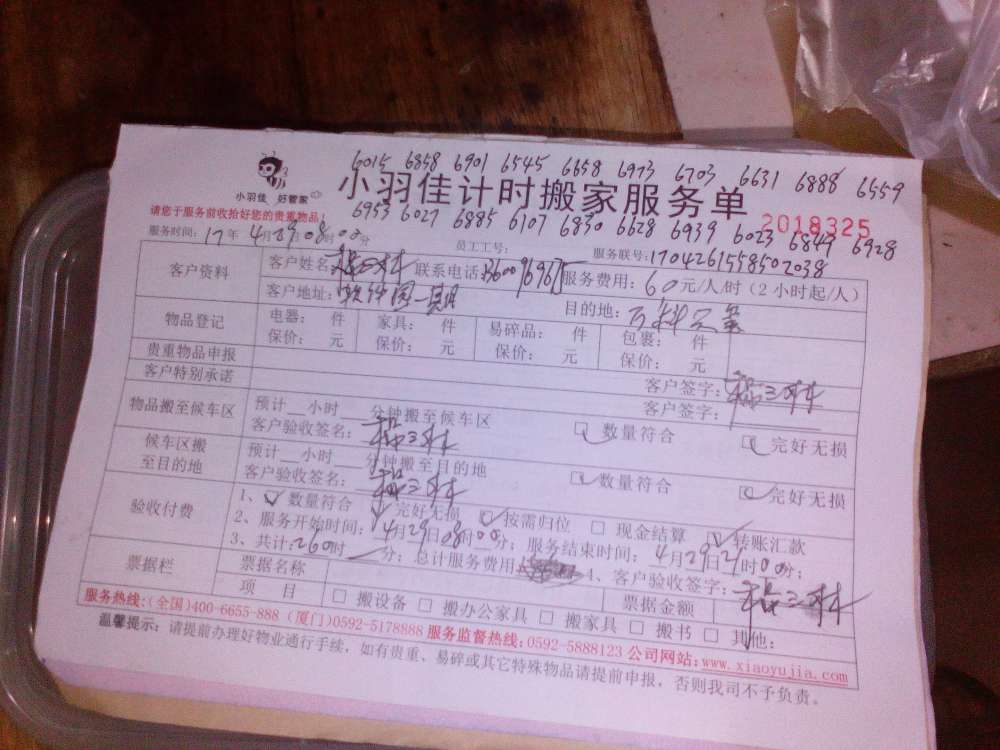 6015 6858 6901 6545 6658 6973 6703 6631 6888 6559
小羽佳 好管家
小羽佳计时搬家服务单
请您于服务前收拾好您的贵重物品!
6953 6027 6885 6107 6830 6628 6939 6023 6849 6928
2018325
服务时间: 17年4月29日08时00分 员工工号: 服务联号: 1704261558502038
客户资料 客户姓名 联系电话: 服务费用: 60元/人/时 (2小时起/人)
客户地址: 软件园一期 目的地: 万科
物品登记 电器: 件 家具: 件 易碎品: 件 包裹: 件
保价: 元 保价: 元 保价: 元 保价: 元
贵重物品申报 客户签字:
客户特别承诺 客户签字:
物品搬至候车区 预计__小时__分钟搬至候车区 □ 数量符合 □ 完好无损
客户验收签名:
候车区搬至目的地 预计__小时__分钟搬至目的地 □ 数量符合 □ 完好无损
客户验收签名:
验收付费 1、 数量符合 完好无损 按需归位 □ 现金结算 转账汇款
2、服务开始时间: 4月29日08时00分; 服务结束时间: 4月29日21时00分;
3、共计: 260时__分; 总计服务费用 4、客户验收签字:
票据栏 票据名称 票据金额
项目 □ 搬设备 □ 搬办公家具 □ 搬家具 □ 搬书 □ 其他:
服务热线:(全国)400-6655-888 (厦门)0592-5178888 服务监督热线:0592-5888123 公司网站:www.xiaoyujia.com
温馨提示: 请提前办理好物业通行手续, 如有贵重、易碎或其它特殊物品请提前申报, 否则我司不予负责。